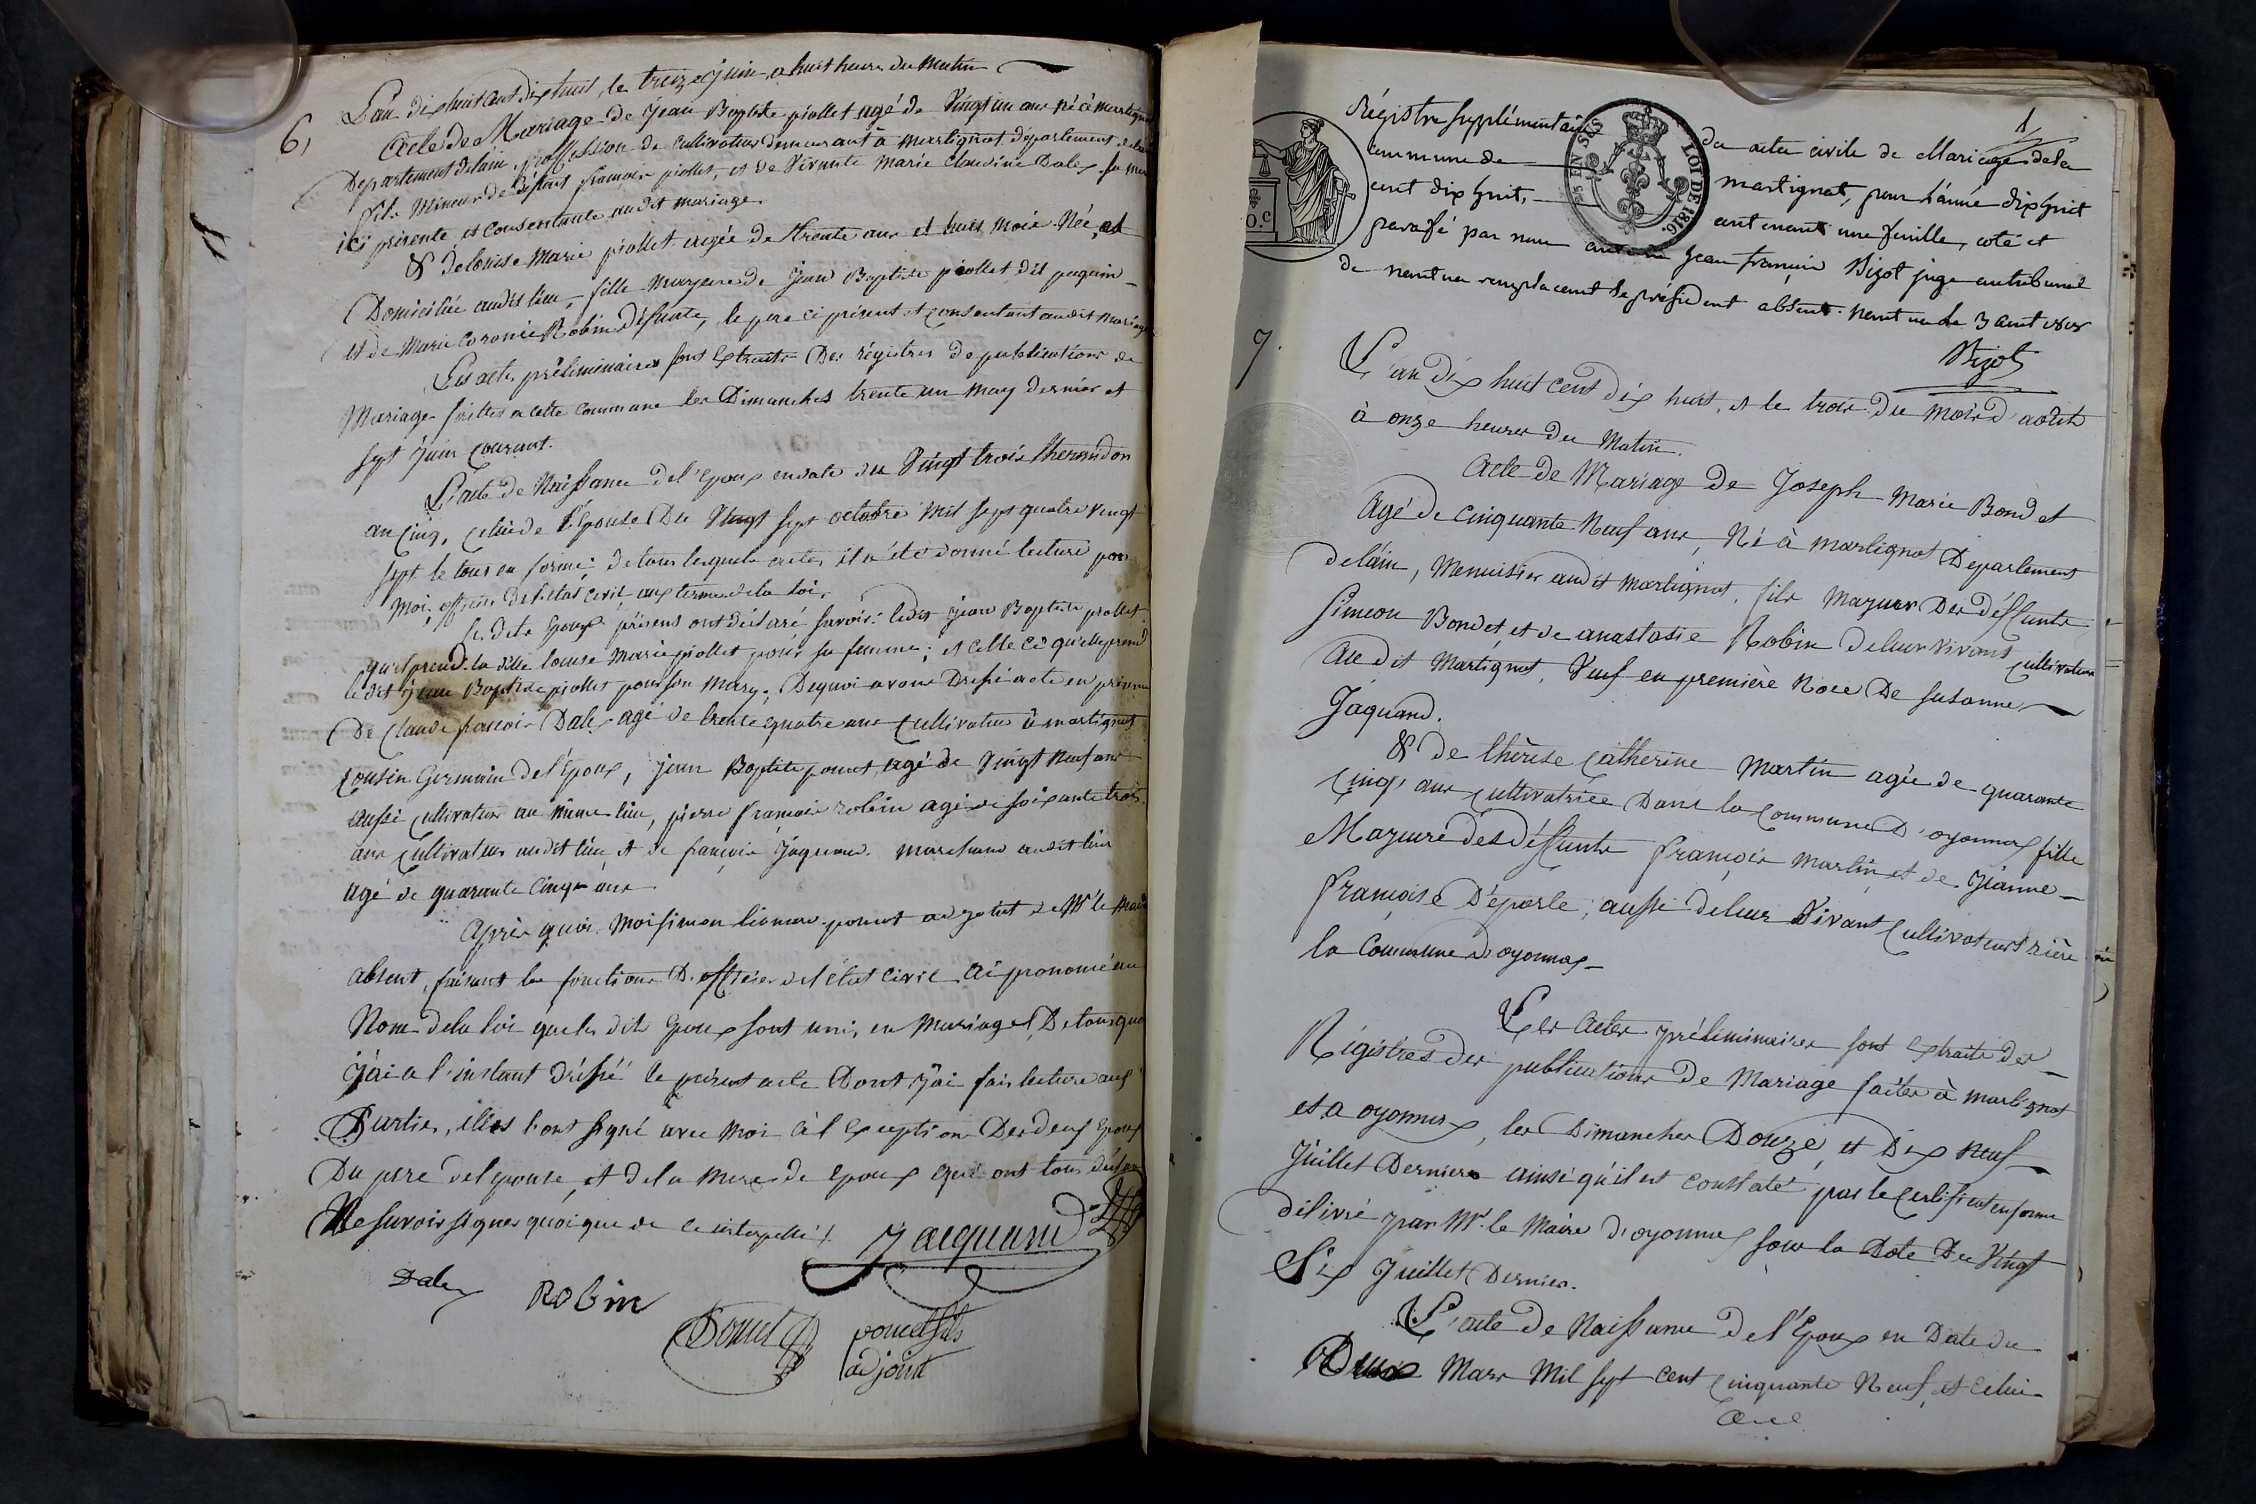 6,
L'an dix huit cent dix huit, le treize juin, a huit heures du Matin
Acte de Mariage de Jean Baptiste piollet agé de Vingt un ans né à martignat
Departement delain, profession de Cultivateur demeurant à martignat département delain
fils Mineur de défunt françois piollet, et de Vivante Marie Claudine Dalex sa mere
ici présente et consentante audit mariage.
& de louise Marie piollet aagée de trente ans et huit mois Née, et
Domiciliée audit lieu, fille majeure de Jean Baptiste piollet dit
et de Marie Robin défunte, le pere ci présent et consentant audit mariage
Les actes préliminaires sont Extraits Des régistres de publications de
Mariage faittes a cette commune les Dimanches trente un may dernier et
sept Juin Courant.
L'acte de Naissance de l'Epoux en date du Vingt trois thermidor
an Cinq, celui de l'Epouse Du Vingt sept octobre mil sept quatre vingt
sept le tous en forme: de tous lesquels actes, il a été donné lecture par
moi, officier de l'état civil aux termes de la loi,
Lesdits Epoux présens ont déclaré savoir: ledit Jean Baptiste piollet
qu'il prend la ditte louise Marie piollet pour sa femme; et celle ci qu'elle prend
le dit Jean Baptiste piollet pour son Mary; Dequoi avons Dressé acte en présence
De Claude françois Dalex agé de trente quatre ans Cultivateur à martignat
Cousin Germain de l'Epoux, jean Baptiste poncet, agé de Vingt Neuf ans
aussi Cultivateur au même lieu, pierre françois robin agé de soixante trois
ans Cultivateur audit lieu, et de françois Jaquand marchand audit lieu
agé de quarante Cinq ans
Après quoi, Moi simon poncet adjoint de Mr le Maire
absent, faisant les fonctions D'officier de l'état Civil ai prononcé au
Nom de la loi que les dits Epoux sont unis en Mariage, De tous quoi
j'ai a l'instant Dréssé le présent acte Dont j'ai fais lecture aux
Parties, illes l'ont signé avec moi à l'Exception Des deux Epoux
Du pere del epouse, et de la mere de epoux qui ont tous déclaré
Ne savoir signer quoique de ce interpellé /.
Jacquand
Dalex
Robin
Poncet
poncet fils
adjoint
1
Régistre supplémentaire des actes civils de Mariage de la
commune de martignat, pour l'année dix huit
cent dix huit, contenant une feuille, coté et
parafé par nous Jean françois Bizot juge au tribunal
de nantua remplacant le président absent. nantua le 3 aout 1818
Bizot
LOI DE 1816.
EN SUS
7.
L'an Dix huit cent dix huit, et le trois du mois d'août
à onze heures du Matin.
Acte de Mariage de Joseph Marie Bondet
Agé de cinquante Neuf ans, Né à martignat Département
delain, Menuisier audit martignat, fils Majeur Des déffunts
Simeon Bondet et de anastasie Robin de leur Vivant Cultivateurs
Au dit Martignat, Veuf en première Noce De susanne
Jaquand.
& De thérèse Catherine Martin agée de quarante
Cinq ans Cultivatrice Dans la Commune D'oyonnax fille
Majeure des déffunts françois martin, et de Jeanne
françoise D'éporle, aussi de leur Vivant Cultivateurs rière
la Commune d'oyonnax
Les Actes préliminaires sont Extraits des
Régistres des publications de Mariage faites à martignat
et a oyonnax, les Dimanches Douze, et Dix Neuf
Juillet Derniers ainsi qu'il est constaté par le Certificat en forme
délivré par Mr. le Maire d'oyonnax sous la Date Du Vingt
Six Juillet Dernier.
L'acte de Naissance de l'Epoux en Date du
Deux Mars Mil sept cent Cinquante Neuf, et celui